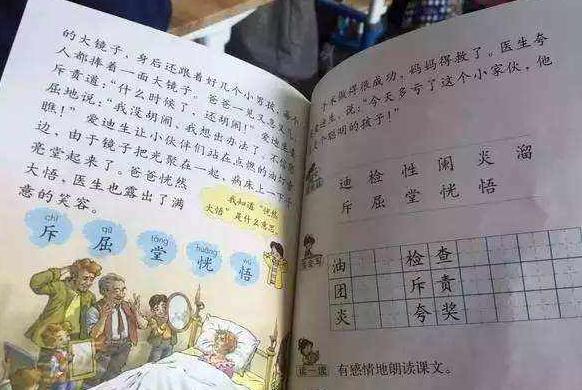 的大镜子,身后还跟着好几个小男孩,每个
人都捧着一面大镜子。爸爸一见又急又
斥责道:“什么时候了,还胡闹!”爱迪生
屈地说:“我没胡闹,我想出办法了,不信
瞧!”爱迪生让小伙伴们站在点燃的油灯
边,由于镜子把光聚在一起,病床上一下子
亮堂起来了。爸爸恍然
大悟,医生也露出了满
意的笑容。
我知道“恍然
大悟”是什么意思。
chì qū táng huǎng wù
斥 屈 堂 恍 悟
手术做得很成功,妈妈得救了。医生夸
爱迪生,说:“今天多亏了这个小家伙,他
个聪明的孩子!”
迪 检 性 闹 炎 溜
斥 屈 堂 恍 悟
油 检查
团 斥责
炎 夸奖
读一读
有感情地朗读课文。